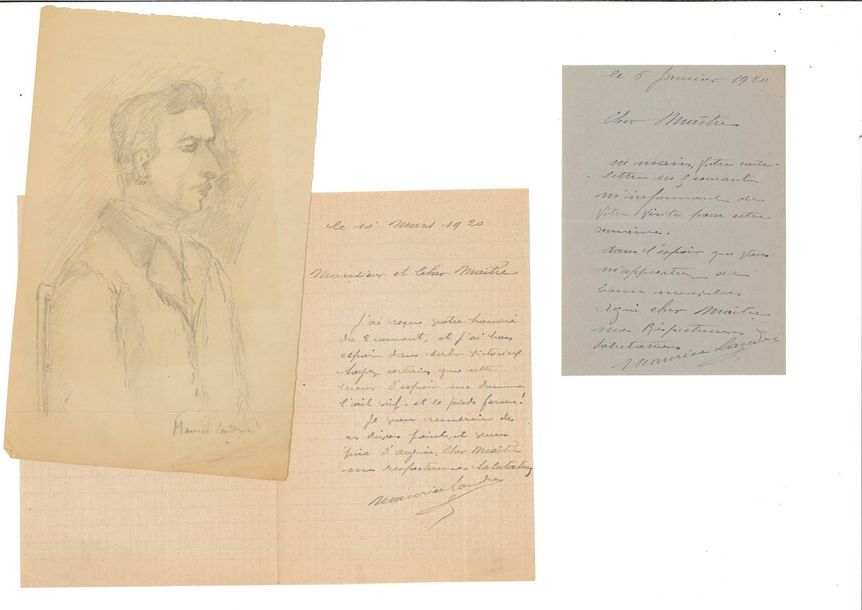 Maurice Landru
le 10 Mars 1920
Monsieur et Cher Maître
J'ai reçu votre honoré
du 8 courant, et j'ai bon
espoir dans
Soyez certain que cette
lueur d'espoir me donne
l'œil vif et le pied ferme!
Je vous remercie de
ces divers points, et vous
prie d'agréer, Cher Maître
mes respectueuses salutations
Maurice Landru
le 6 Janvier 1920
Cher Maître
en mains, votre carte-
lettre du courant
m'informant de
votre visite pour cette
semaine.
dans l'espoir que vous
m'apporterez de
bonnes nouvelles
cher Maître
mes Respectueuses
salutations
Maurice Landru